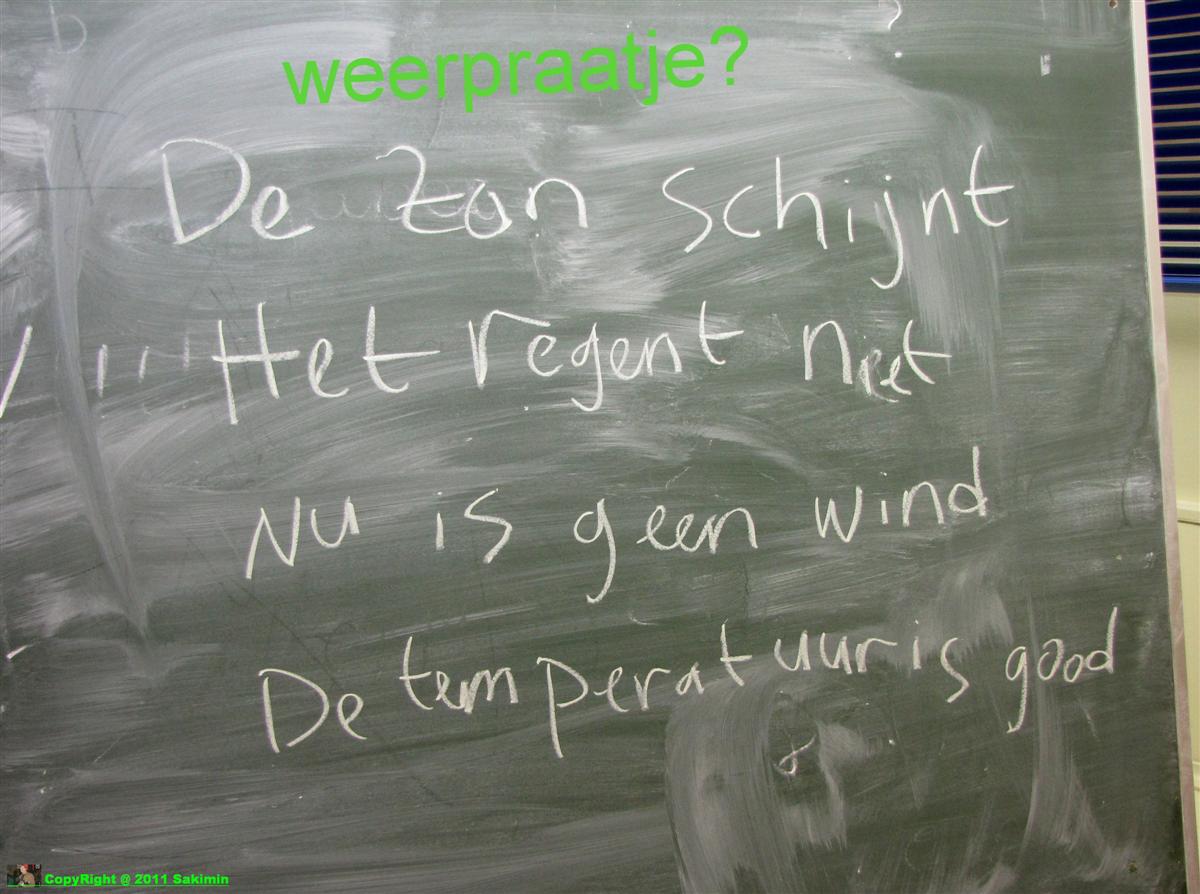 weerpraatje?
De zon schijnt
Het regent niet
Nu is geen wind
De temperatuur is good
CopyRight @ 2011 Sakimin